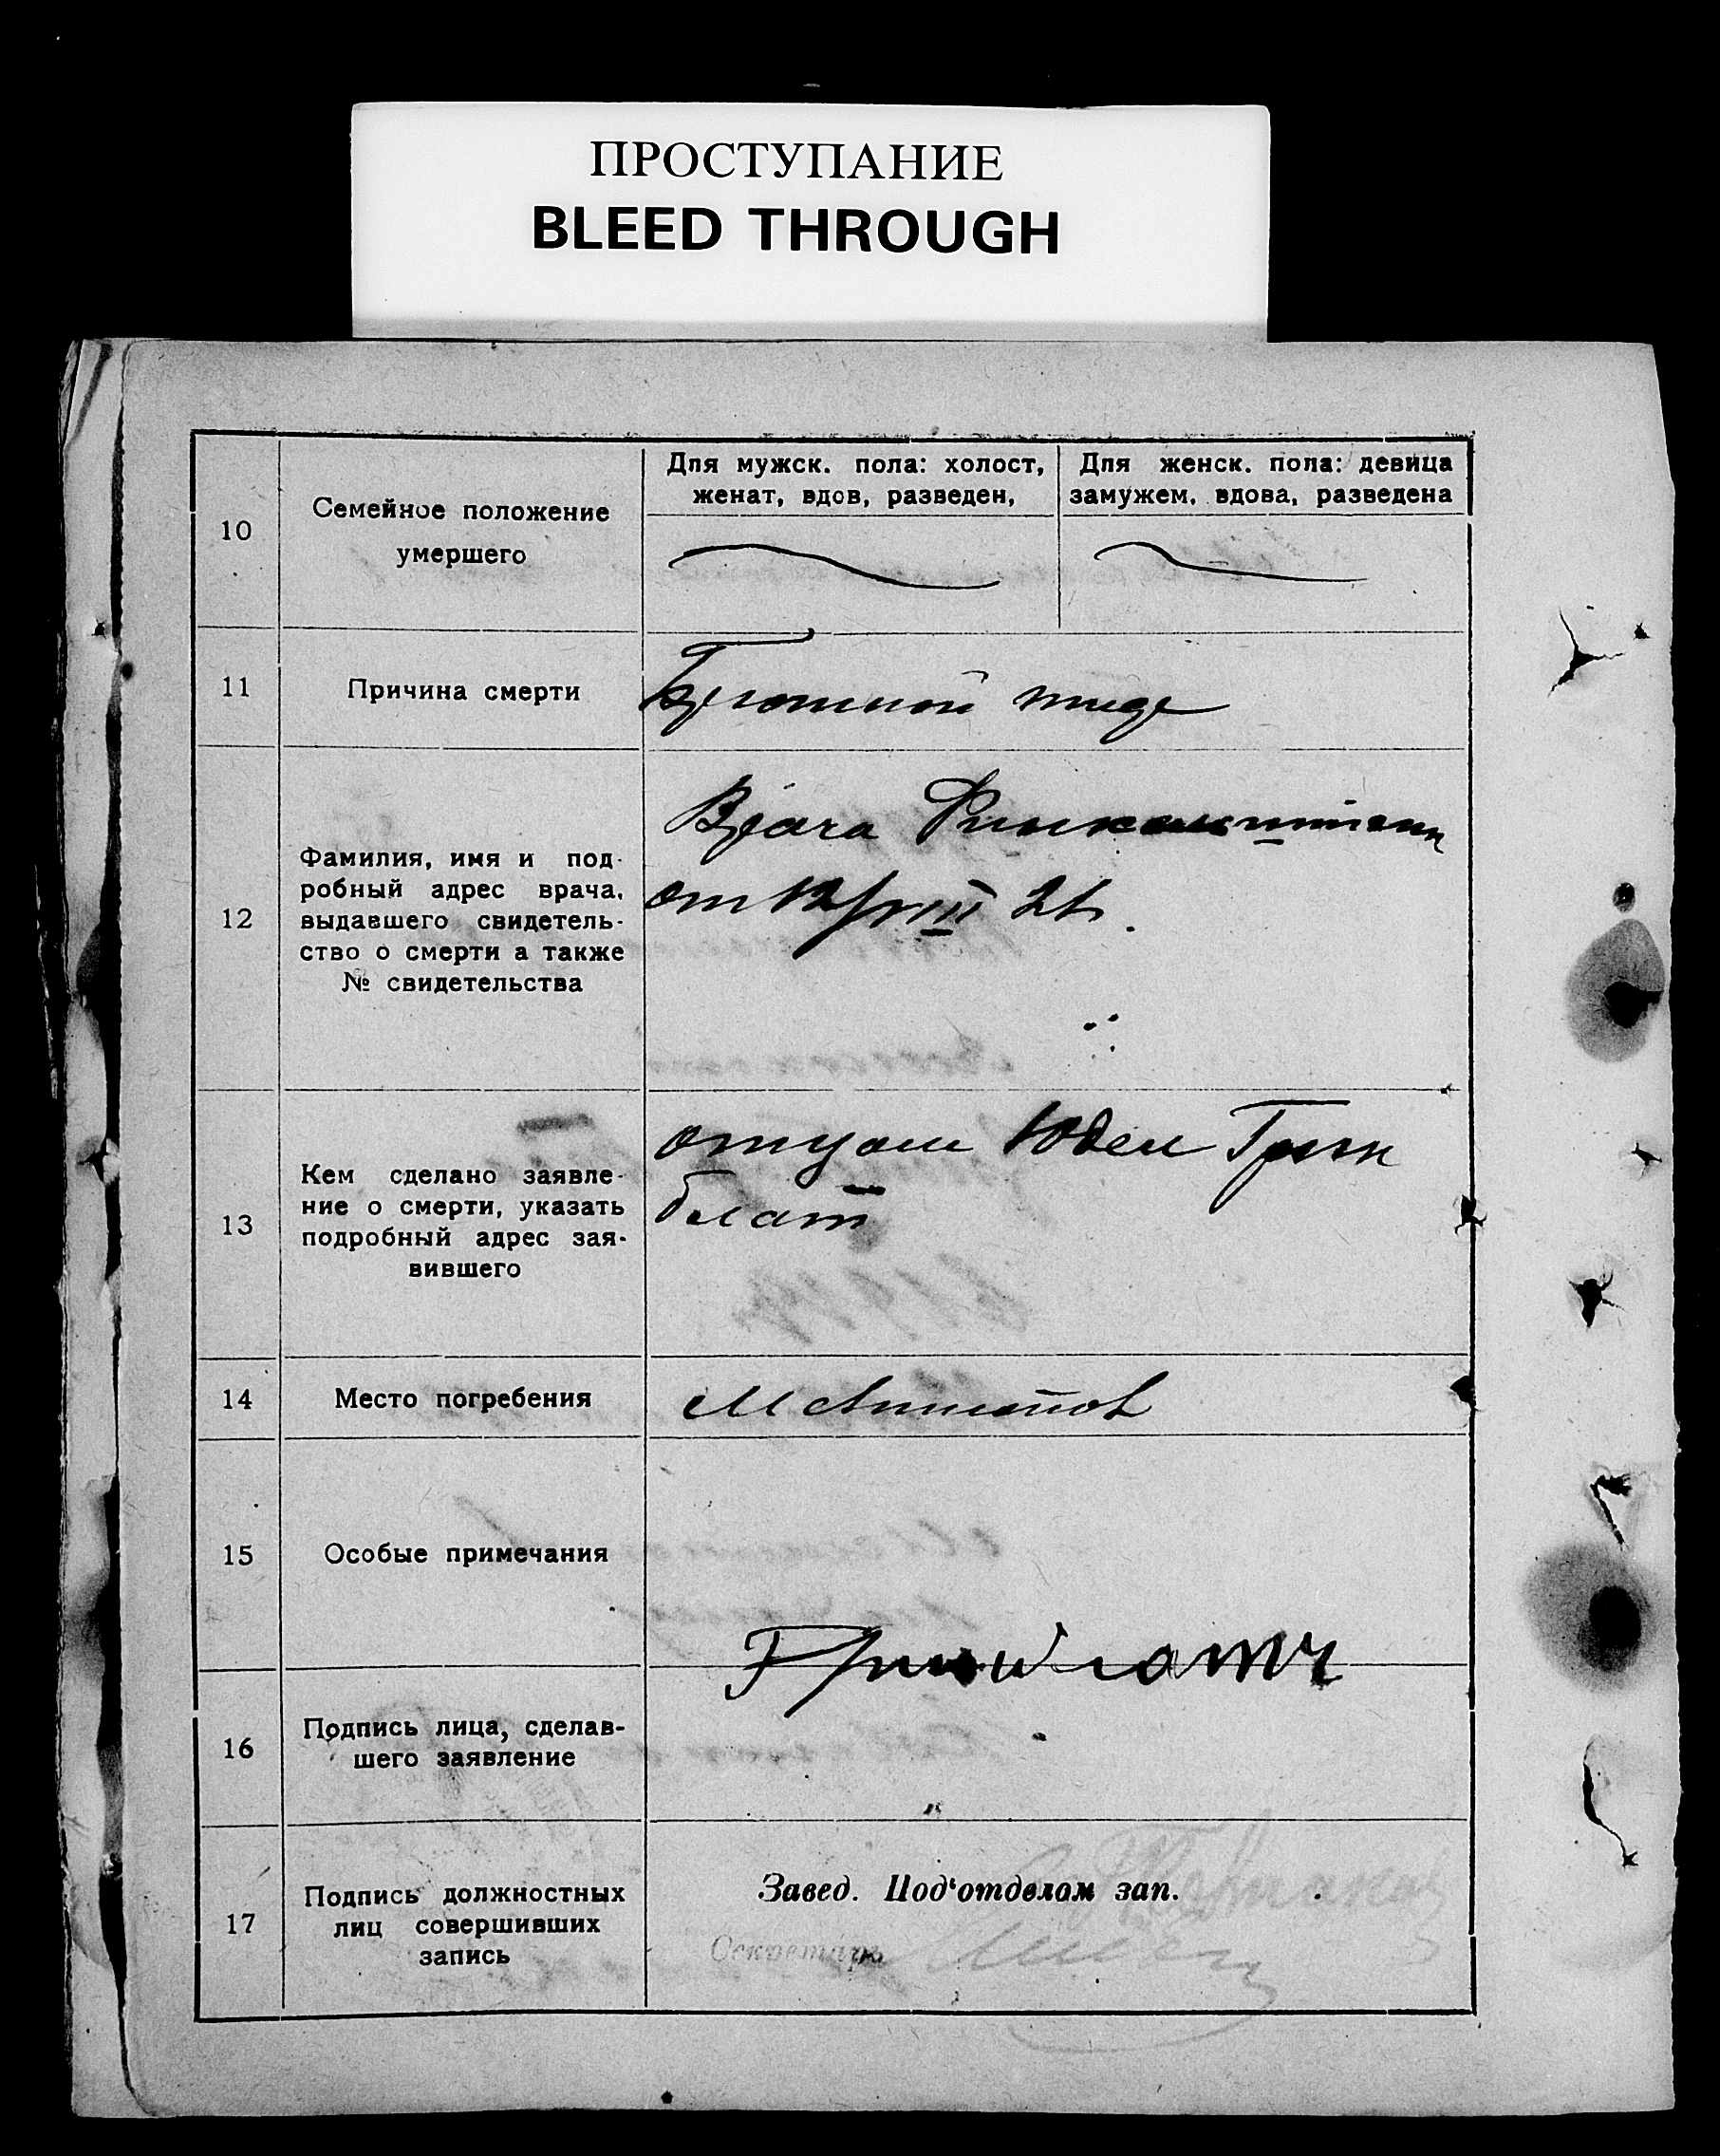 ПРОСТУПАНИЕ
BLEED THROUGH
10
Семейное положение
умершего
Для мужск. пола: холост,
женат, вдов, разведен,
Для женск. пола: девица
замужем, вдова, разведена
11
Причина смерти
Брюшной тиф
12
Фамилия, имя и под-
робный адрес врача,
выдавшего свидетель-
ство о смерти а также
№ свидетельства
Врача
от 12/VIII 21
13
Кем сделано заявле-
ние о смерти, указать
подробный адрес зая-
вившего
отцом Юдем Грин
блат
14
Место погребения
М
15
Особые примечания
16
Подпись лица, сделав-
шего заявление
Гринблатъ
17
Подпись должностных
лиц совершивших
запись
Завед. Под‘отделом зап.
Секретарь